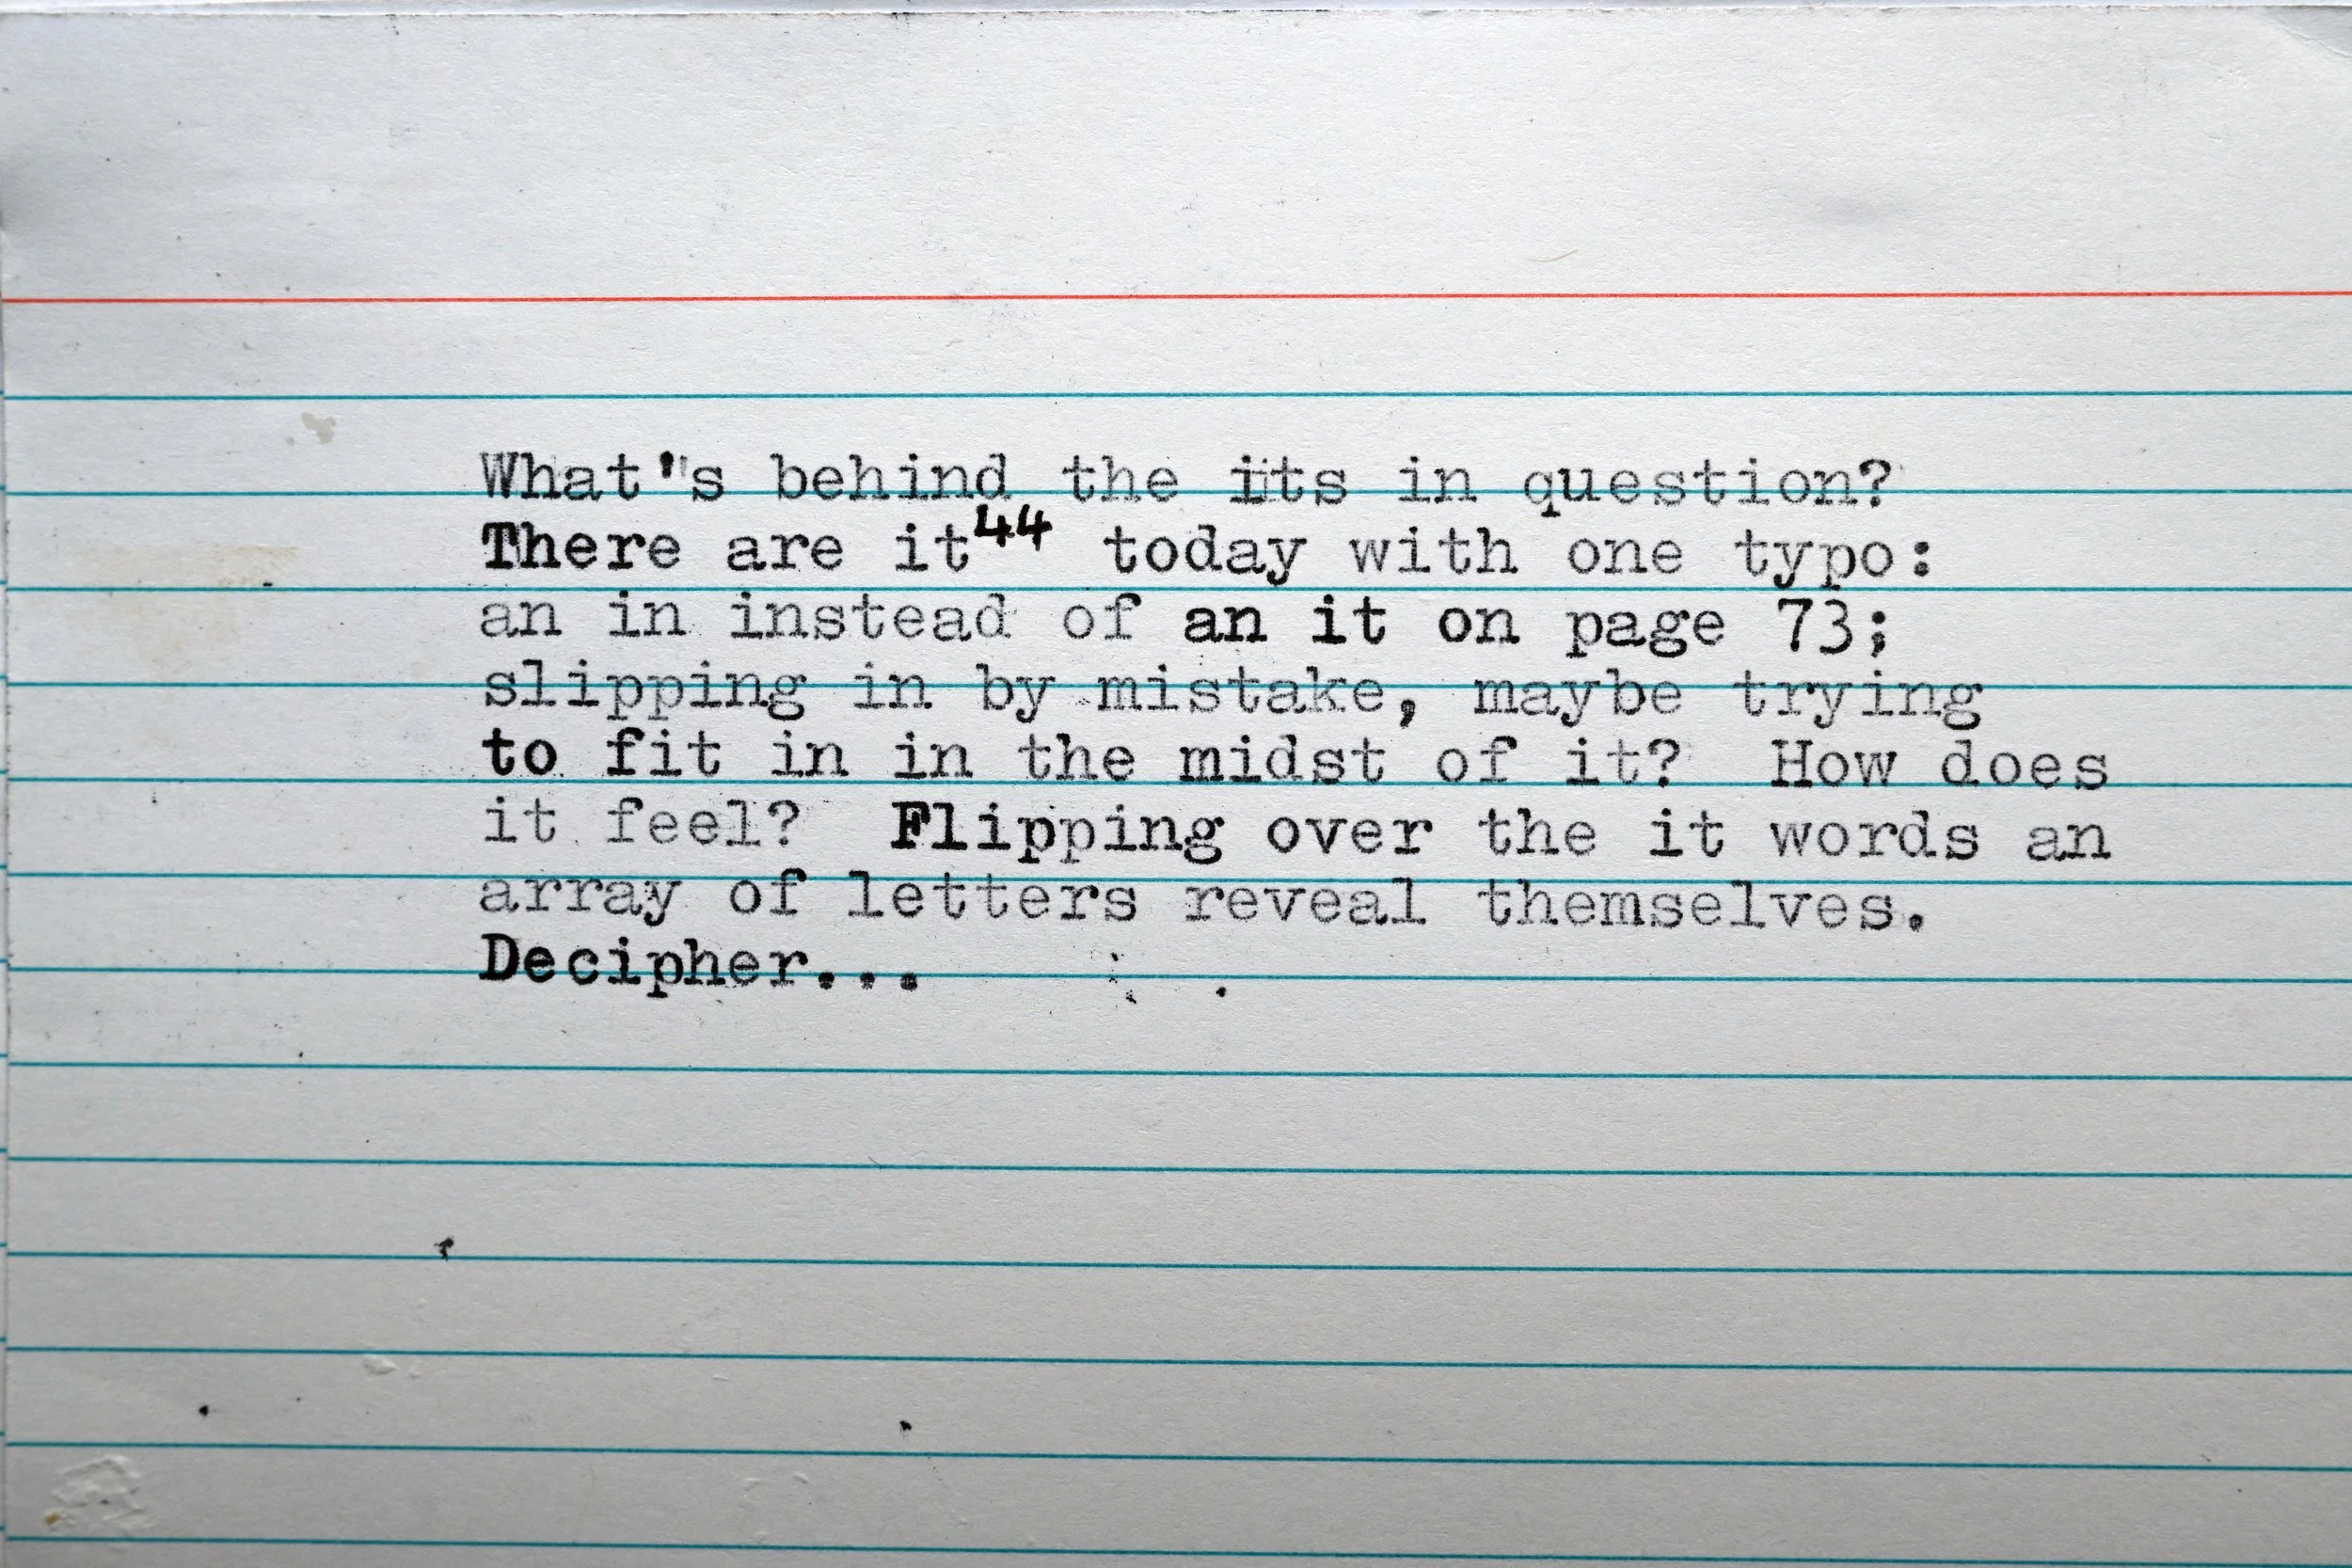 What's behind the its in question?
There are it⁴⁴ today with one typo:
an in instead of an it on page 73;
slipping in by mistake, maybe trying
to fit in in the midst of it?  How does
it feel?  Flipping over the it words an
array of letters reveal themselves.
Decipher...